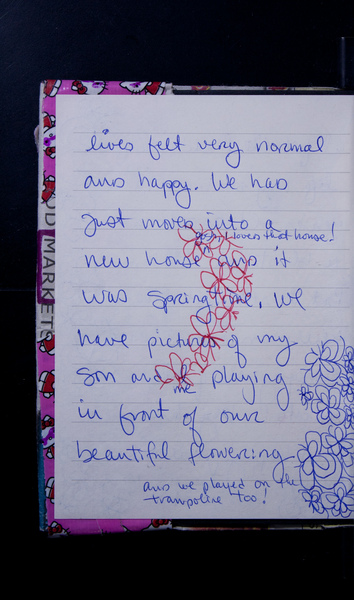 lives felt very normal
and happy. We had
just moved into a
I loved that house!
new house and it
was springtime. We
have pictures of my
son and
me playing
in front of our
beautiful flowering
and we played on the
trampoline too!
OD MARKETS